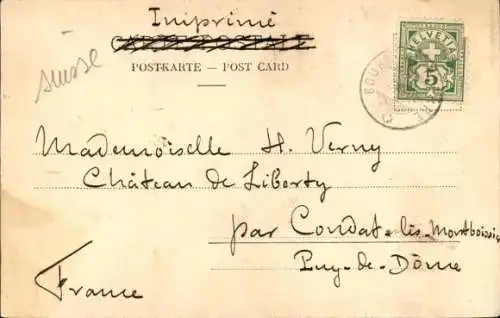 Imprimé
CARTE POSTALE
POSTKARTE — POST CARD
Suisse
HELVETIA
5
Mademoiselle H. Verny
Château de Liberty
par Condat-lès-Montboissier
Puy-de-Dôme
France